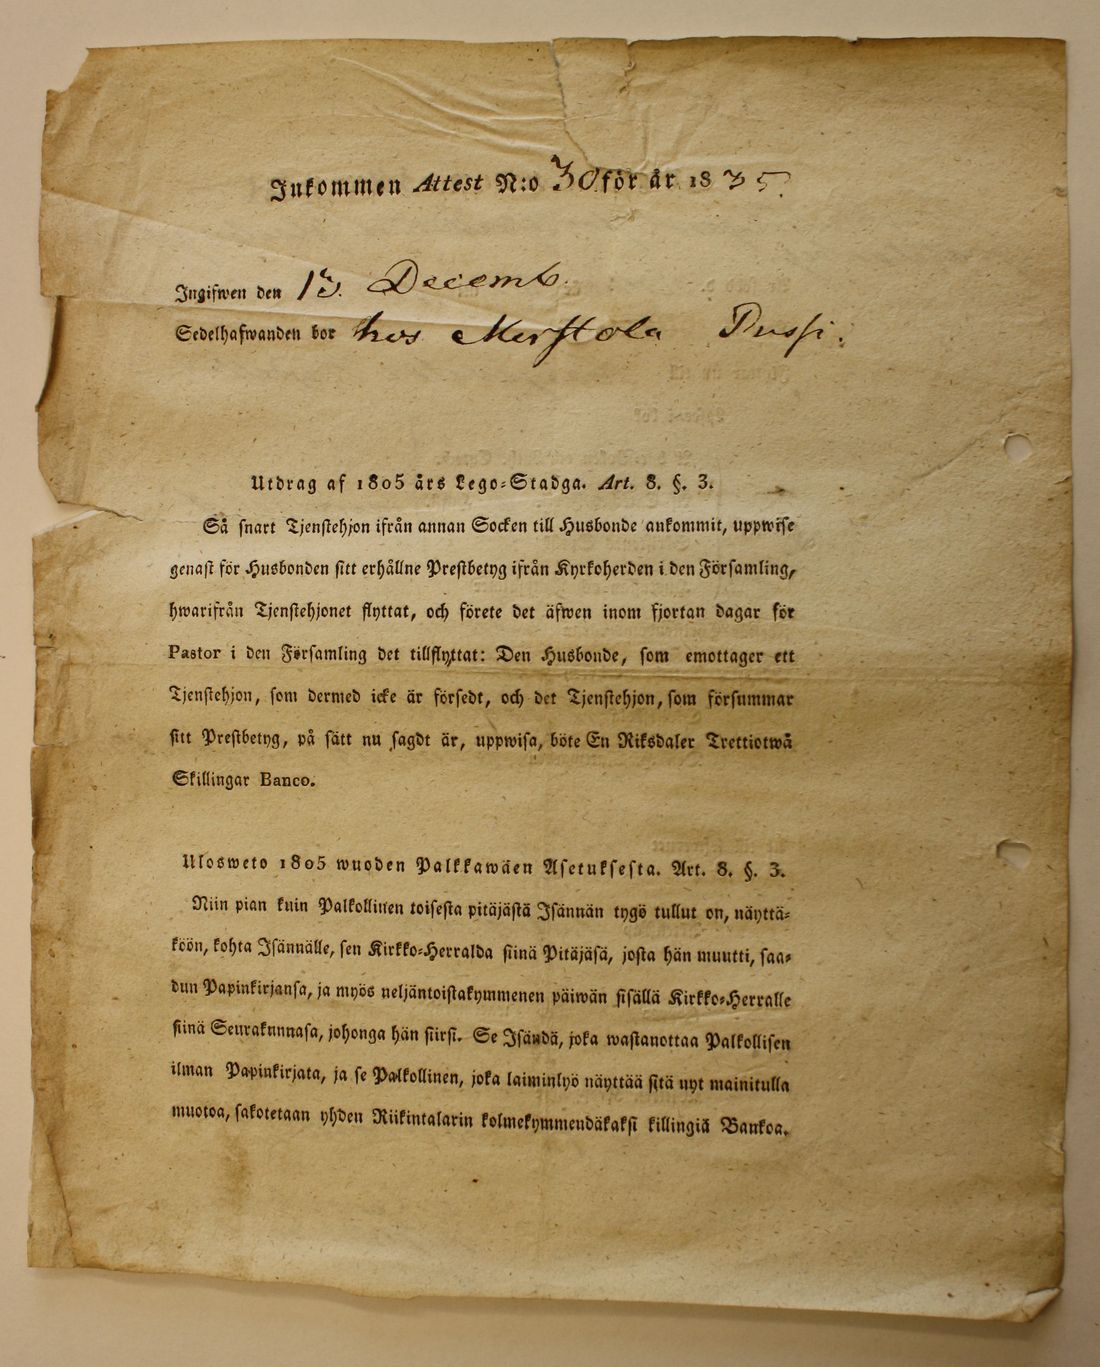 Inkommen Attest N:o 30 för år 1835.
Ingifwen den 13. Decemb.
Sedelhafwanden bor hos Merstola Pussi.
Utdrag af 1805 års Lego-Stadga. Art. 8. §. 3.
Så snart Tjenstehjon ifrån annan Socken till Husbonde ankommit, uppwise
genast för Husbonden sitt erhållne Prestbetyg ifrån Kyrkoherden i den Församling,
hwarifrån Tjenstehjonet flyttat, och förete det äfwen inom fjortan dagar för
Pastor i den Församling det tillflyttat: Den Husbonde, som emottager ett
Tjenstehjon, som dermed icke är försedt, och det Tjenstehjon, som försummar
sitt Prestbetyg, på sätt nu sagdt är, uppwisa, böte En Riksdaler Trettiotwå
Skillingar Banco.
Ulosweto 1805 wuoden Palkkawäen Asetuksesta. Art. 8. §. 3.
Niin pian kuin Palkollinen toisesta pitäjästä Isännän tygö tullut on, näyttä-
köön, kohta Isännälle, sen Kirkko-Herralda siinä Pitäjäsä, josta hän muutti, saa-
dun Papinkirjansa, ja myös neljäntoistakymmenen päiwän sisällä Kirkko-Herralle
siinä Seurakunnasa, johonga hän siirsi. Se Isändä, joka wastanottaa Palkollisen
ilman Papinkirjata, ja se Palkollinen, joka laiminlyö näyttää sitä nyt mainitulla
muotoa, sakotetaan yhden Riikintalarin kolmekymmendäkaksi killingiä Bankoa.